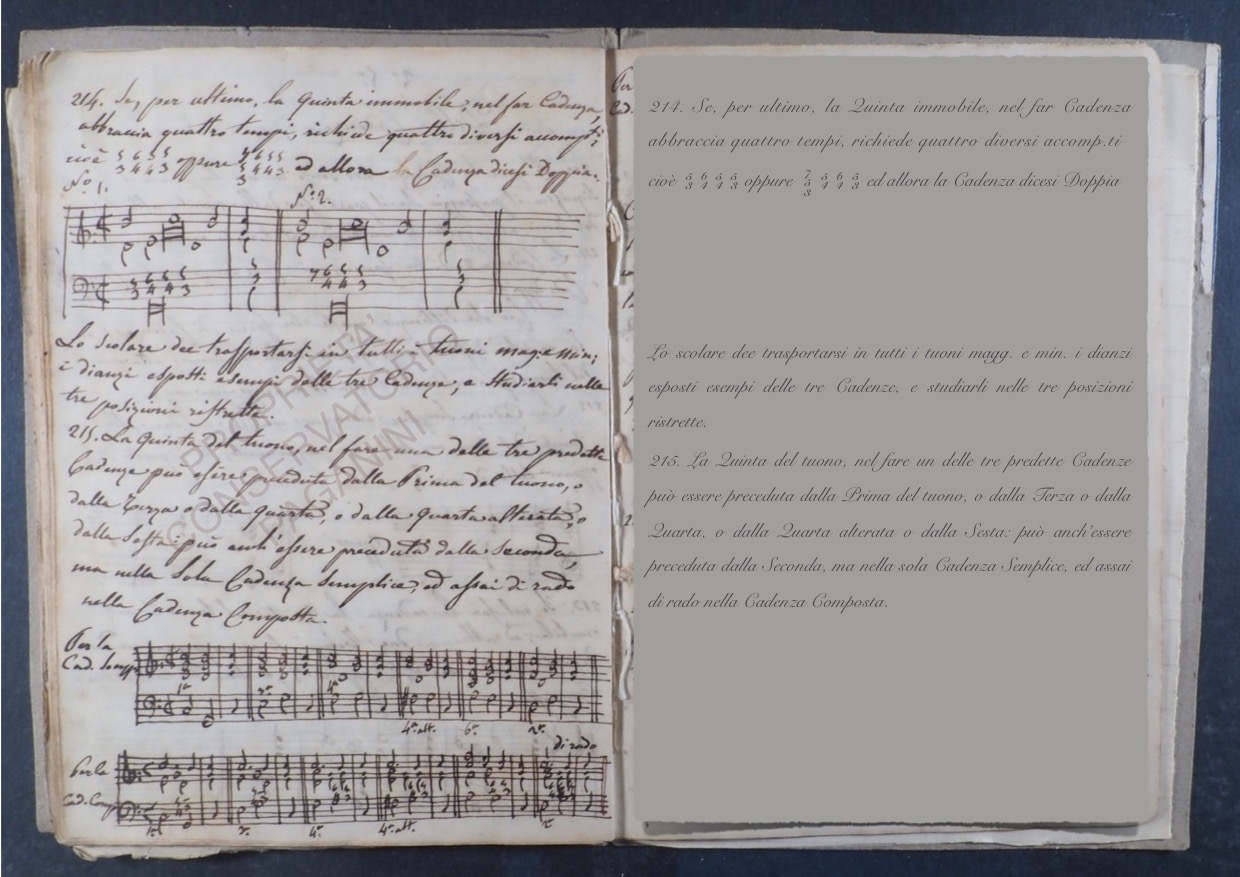 214. Se, per ultimo, la Quinta immobile, nel far Cadenza,
abbraccia quattro tempi, richiede quattro diversi accomp.ti
cioè 5 6 5 5 oppure 7 6 5 5 ed allora la Cadenza dicesi Doppia.
3 4 4 3 5 4 4 3
3
No. 1.
No. 2.
5 6 5 5
3 4 4 3
5
3
7 6 5 5
4 4 3
5
3
Lo scolare dee trasportarsi in tutti i tuoni mag: e min:
i dianzi esposti esempi delle tre Cadenze, e studiarli nelle
tre posizioni ristrette.
215. La Quinta del tuono, nel fare una delle tre predette
Cadenze può essere preceduta dalla Prima del tuono, o
dalla Terza o dalla Quarta, o dalla Quarta alterata, o
dalla Sesta: può anch'essere preceduta dalla Seconda,
ma nella sola Cadenza Semplice, ed assai di rado
nella Cadenza Composta.
Per la
Cad. Semp.
1a
3a
4a
4a alt.
6a
2a
di rado
Per la
Cad. Comp.
1a
3a
4a
4a alt.
2a
PROPRIETÀ
CONSERVATORIO
PAGANINI
Per
Cad.
214. Se, per ultimo, la Quinta immobile, nel far Cadenza
abbraccia quattro tempi, richiede quattro diversi accomp.ti
cioè 5 6 5 5 oppure 7 5 6 5 ed allora la Cadenza dicesi Doppia
3 4 4 3 5 4 4 3
3
Lo scolare dee trasportarsi in tutti i tuoni magg. e min. i dianzi
esposti esempi delle tre Cadenze, e studiarli nelle tre posizioni
ristrette.
215. La Quinta del tuono, nel fare un delle tre predette Cadenze
può essere preceduta dalla Prima del tuono, o dalla Terza o dalla
Quarta, o dalla Quarta alterata o dalla Sesta: può anch'essere
preceduta dalla Seconda, ma nella sola Cadenza Semplice, ed assai
di rado nella Cadenza Composta.